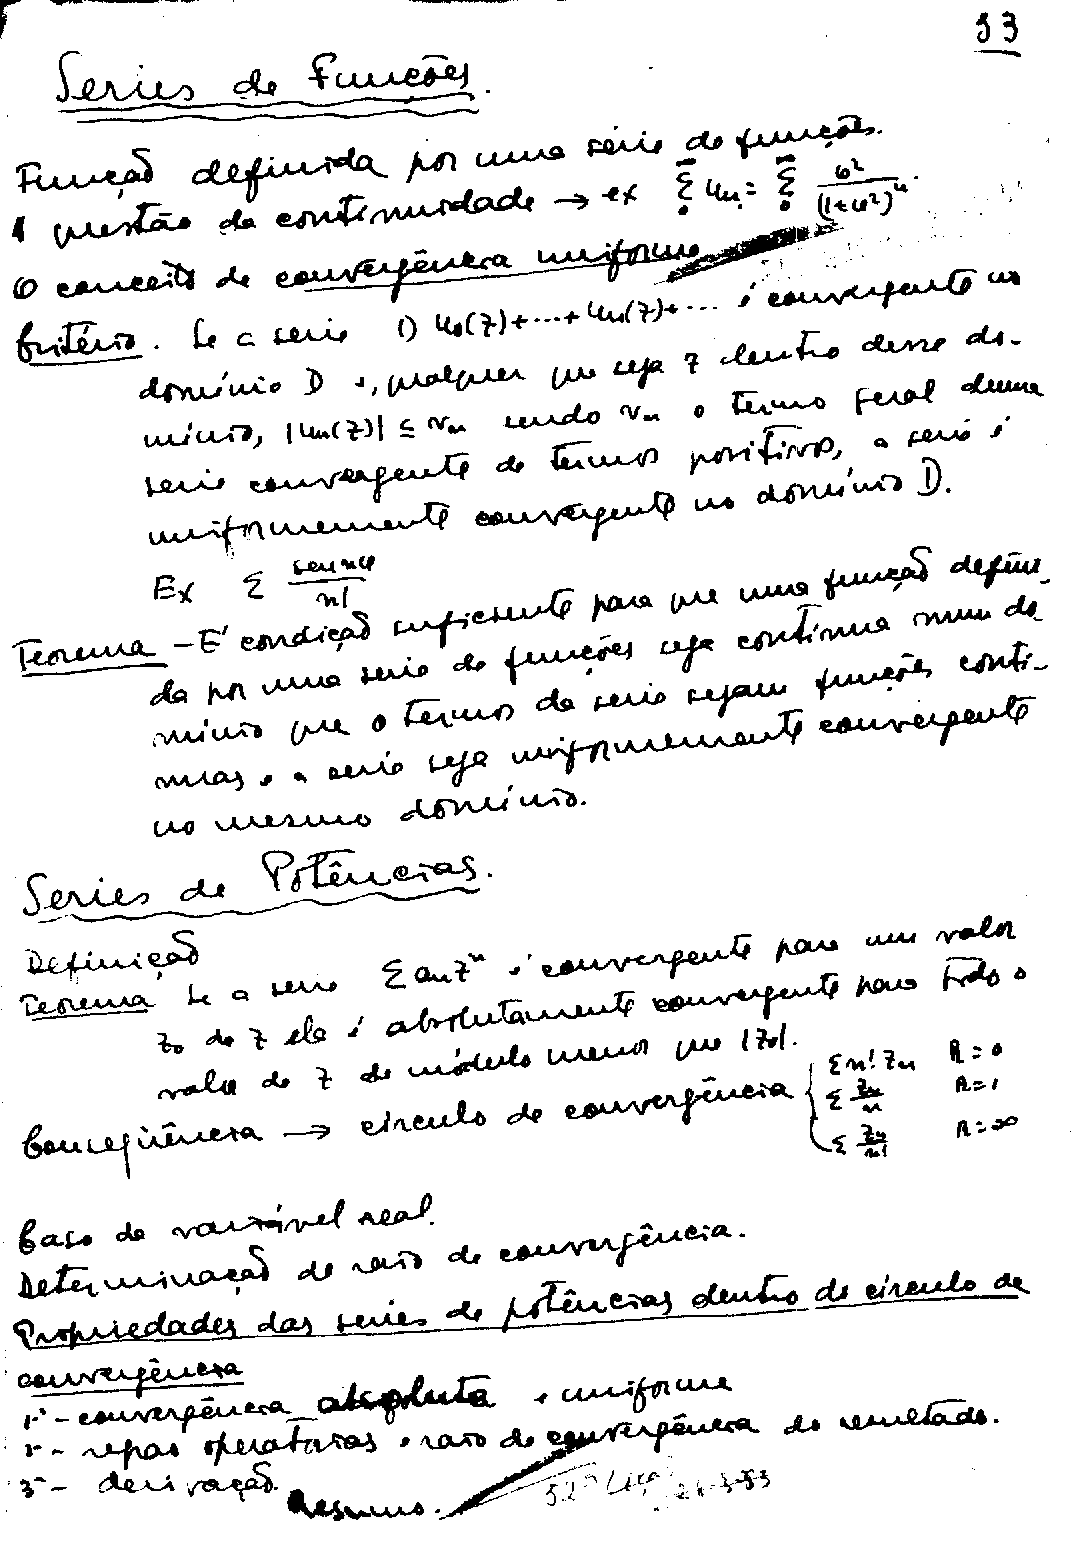 53
Series de Funções.
Função definida por uma série de funções.
A questão da continuidade → ex ∞Σ0 un = ∞Σ0 φ²/(1+φ²)ⁿ.
O conceito de convergência uniforme
Critério. Se a serie 1) u0(z)+...+un(z)+... é convergente no
domínio D e, qualquer que seja z dentro desse do-
mínio, |un(z)| ≤ vn sendo vn o termo geral duma
serie convergente de termos positivos, a serie é
uniformemente convergente no domínio D.
Ex Σ sen nφ/n!
Teorema - É condição suficiente para que uma função defini-
da por uma serie de funções seja contínua num do-
mínio que o termos da serie sejam funções contí-
nuas e a serie seja uniformemente convergente
no mesmo domínio.
Series de Potências.
Definição
Teorema Se a serie Σ anzⁿ é convergente para um valor
z0 de z ela é absolutamente convergente para todo o
valor de z de módulo menor que |z0|.
Conseqüência → círculo de convergência { Σ n! zn R=0
Σ zn/n R=1
Σ zn/n! R=∞
Caso de variável real.
Determinação do raio de convergência.
Propriedades das series de potências dentro do círculo de
convergência
1ª - convergência absoluta e uniforme
2ª - regras operatórias e raio de convergência do resultado.
3ª - derivação.
Resumo.
52ª Liç 53